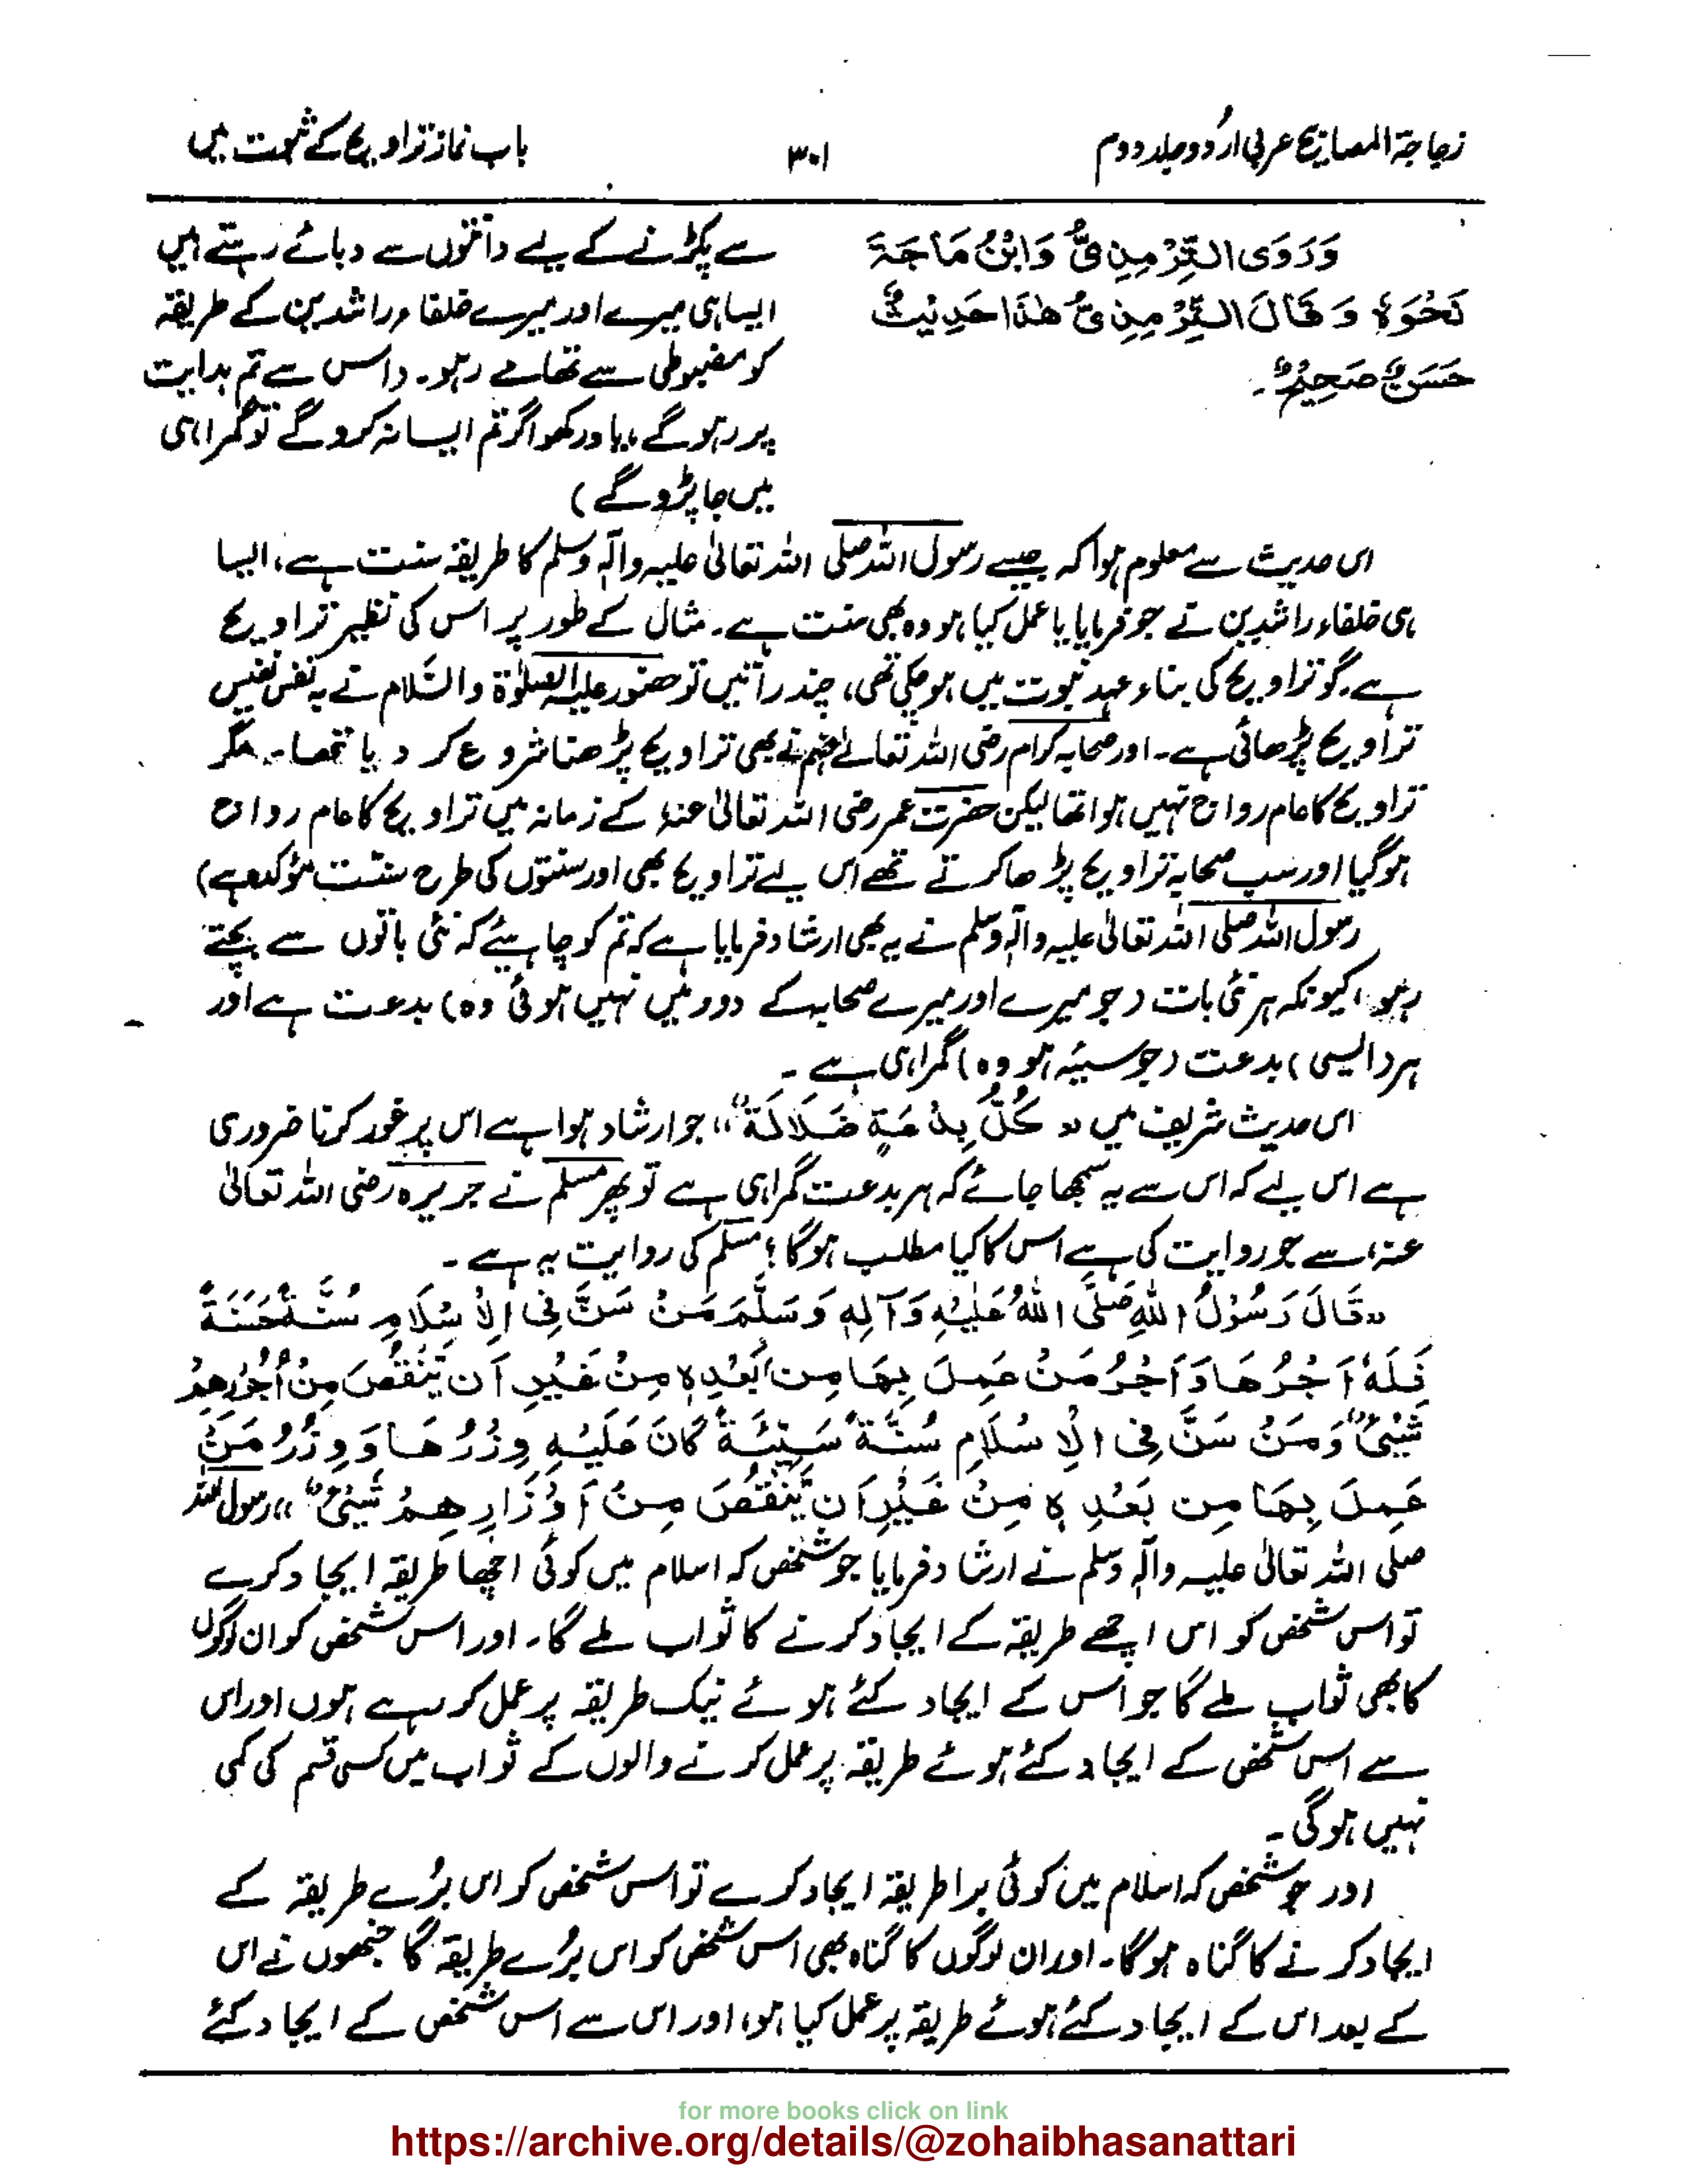 زجاجۃ المصابیح عربی اردو جلد دوم
۳۰۱
باب نماز تراویح کے ثبوت میں
وَرَوَى التِّرْمِذِيُّ وَابْنُ مَاجَةَ
نَحْوَهٗ وَقَالَ التِّرْمِذِيُّ هٰذَا حَدِيْثٌ
حَسَنٌ صَحِيْحٌ ۔
سے پکڑنے کے لیے دانتوں سے دبائے رہتے ہیں
ایسا ہی میرے اور میرے خلفاء راشدین کے طریقہ
کو مضبوطی سے تھامے رہو۔ (اس سے تم ہدایت
پر رہو گے، یاد رکھو اگر تم ایسا نہ کرو گے تو گمراہی
میں جا پڑو گے )
اس حدیث سے معلوم ہوا کہ جیسے رسول اللہ صلی اللہ تعالیٰ علیہ وآلہٖ وسلم کا طریقہ سنت ہے، ایسا
ہی خلفاء راشدین نے جو فرمایا یا عمل کیا ہو وہ بھی سنت ہے۔ مثال کے طور پر اس کی نظیر تراویح
ہے۔ گو تراویح کی بناء عہد نبوت میں ہو چکی تھی، چند راتیں تو حضور علیہ الصلوٰۃ والسّلام نے بہ نفس نفیس
تراویح پڑھائی ہے۔ اور صحابہ کرام رضی اللہ تعالےٰ عنہم نے بھی تراویح پڑھنا شروع کر دیا تھا۔ مگر
تراویح کا عام رواج نہیں ہوا تھا لیکن حضرت عمر رضی اللہ تعالیٰ عنہٗ کے زمانہ میں تراویح کا عام رواج
ہو گیا اور سب صحابہ تراویح پڑھا کرتے تھے اس لیے تراویح بھی اور سنتوں کی طرح سنّت مؤکدہ ہے)
رسول اللہ صلی اللہ تعالیٰ علیہ وآلہٖ وسلم نے یہ بھی ارشاد فرمایا ہے کہ تم کو چاہیئے کہ نئی باتوں سے بچتے
رہو، کیونکہ ہر نئی بات (جو میرے اور میرے صحابہ کے دور میں نہیں ہوئی وہ) بدعت ہے اور
ہر (ایسی) بدعت (جو سیئہ ہو وہ) گمراہی ہے ۔
اس حدیث شریف میں ’’ كُلُّ بِدْعَةٍ ضَلَالَةٌ ‘‘ جو ارشاد ہوا ہے اس پر غور کرنا ضروری
ہے اس لیے کہ اس سے یہ سمجھا جائے کہ ہر بدعت گمراہی ہے تو پھر مسلم نے جریرہ رضی اللہ تعالیٰ
عنہ سے جو روایت کی ہے اس کا کیا مطلب ہوگا؟ مسلم کی روایت یہ ہے ۔
’’قَالَ رَسُوْلُ اللهِ صَلَّى اللهُ عَلَيْهِ وَآلِهٖ وَسَلَّمَ مَنْ سَنَّ فِى الْاِسْلَامِ سُنَّةً حَسَنَةً
فَلَهٗ اَجْرُهَا وَاَجْرُ مَنْ عَمِلَ بِهَا مِنْ بَعْدِهٖ مِنْ غَيْرِ اَنْ يَّنْقُصَ مِنْ اُجُوْرِهِمْ
شَيْئٌ وَمَنْ سَنَّ فِى الْاِسْلَامِ سُنَّةً سَيِّئَةً كَانَ عَلَيْهِ وِزْرُهَا وَوِزْرُ مَنْ
عَمِلَ بِهَا مِن بَعْدِهٖ مِنْ غَيْرِ اَنْ يَّنْقُصَ مِنْ اَوْزَارِهِمْ شَيْئٌ‘‘ رسول اللہ
صلی اللہ تعالیٰ علیہ وآلہٖ وسلم نے ارشاد فرمایا جو شخص کہ اسلام میں کوئی اچھا طریقہ ایجاد کرے
تو اس شخص کو اس اچھے طریقہ کے ایجاد کرنے کا ثواب ملے گا۔ اور اس شخص کو ان لوگوں
کا بھی ثواب ملے گا جو اس کے ایجاد کئے ہوئے نیک طریقہ پر عمل کر رہے ہوں اور اس
سے اس شخص کے ایجاد کئے ہوئے طریقہ پر عمل کرنے والوں کے ثواب میں کسی قسم کی کمی
نہیں ہوگی ۔
اور جو شخص کہ اسلام میں کوئی برا طریقہ ایجاد کرے تو اس شخص کو اس بُرے طریقہ کے
ایجاد کرنے کا گناہ ہوگا۔ اور ان لوگوں کا گناہ بھی اس شخص کو اس بُرے طریقہ گا جنھوں نے اس
کے بعد اس کے ایجاد کئے ہوئے طریقہ پر عمل کیا ہو، اور اس سے اس شخص کے ایجاد کئے
for more books click on link
https://archive.org/details/@zohaibhasanattari